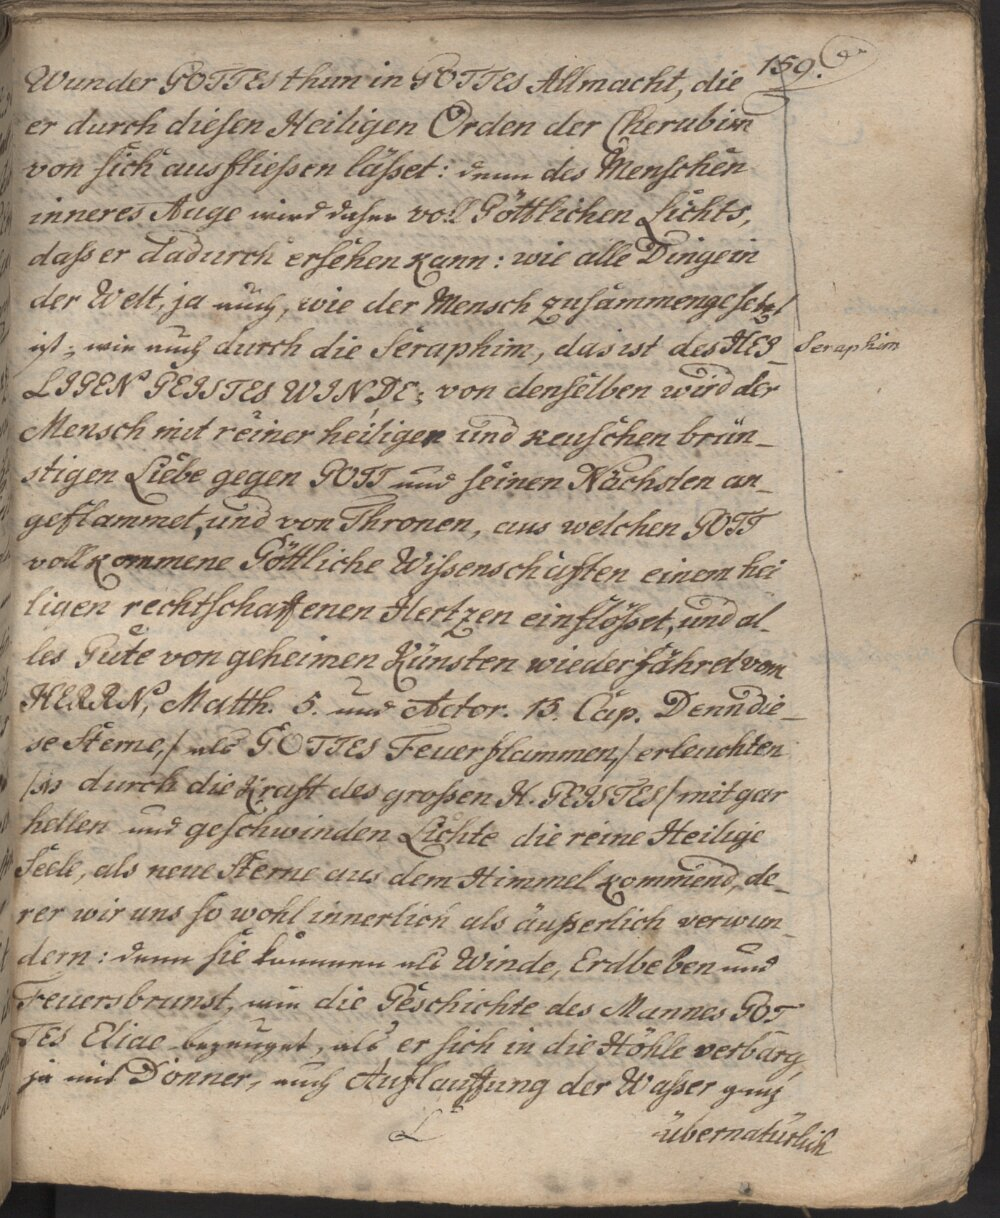 159.
Wunder GOTTES thun in GOTTES Allmacht, die
er durch diesen Heiligen Orden der Cherubim
von sich ausfliessen lässet: denn des Menschen
inneres Auge wird daher voll Göttlichen Lichts,
dass er dadurch ersehen kann: wie alle Dinge in
der Welt, ja auch, wie der Mensch zusammengesetzt
ist; wie auch durch die Seraphim, das ist des HEI-
Seraphim
LIGEN GEISTES WINDE; von denselben wird der
Mensch mit reiner heiligen und keuschen brün-
stigen Liebe gegen GOTT und seinen Nächsten an-
geflammet, und von Thronen, aus welchen GOTT
vollkommene Göttliche Wissenschafften einem hei
ligen rechtschaffenen Hertzen einflösset, und al-
les Gute von geheimen Künsten wiederfähret vom
HERRN, Matth. 5. und Actor. 15. Cap. Denn die-
se Sterne, / als GOTTES Feuerflammen, / erleuchten
/ durch die Krafft des grossen H. GEISTES / mit gar
hellen und geschwinden Lichte die reine Heilige
Seele, als neue Sterne aus dem Himmel kommend, de-
rer wir uns so wohl innerlich als äußerlich verwun-
dern: denn sie kommen als Winde, Erdbeben und
Feuersbrunst, wie die Geschichte des Mannes GOT
TES Eliae bezeuget, als er sich in die Höhle verbarg,
ja mit Donner, auch Auflauffung der Wasser gantz
L
übernatürlich